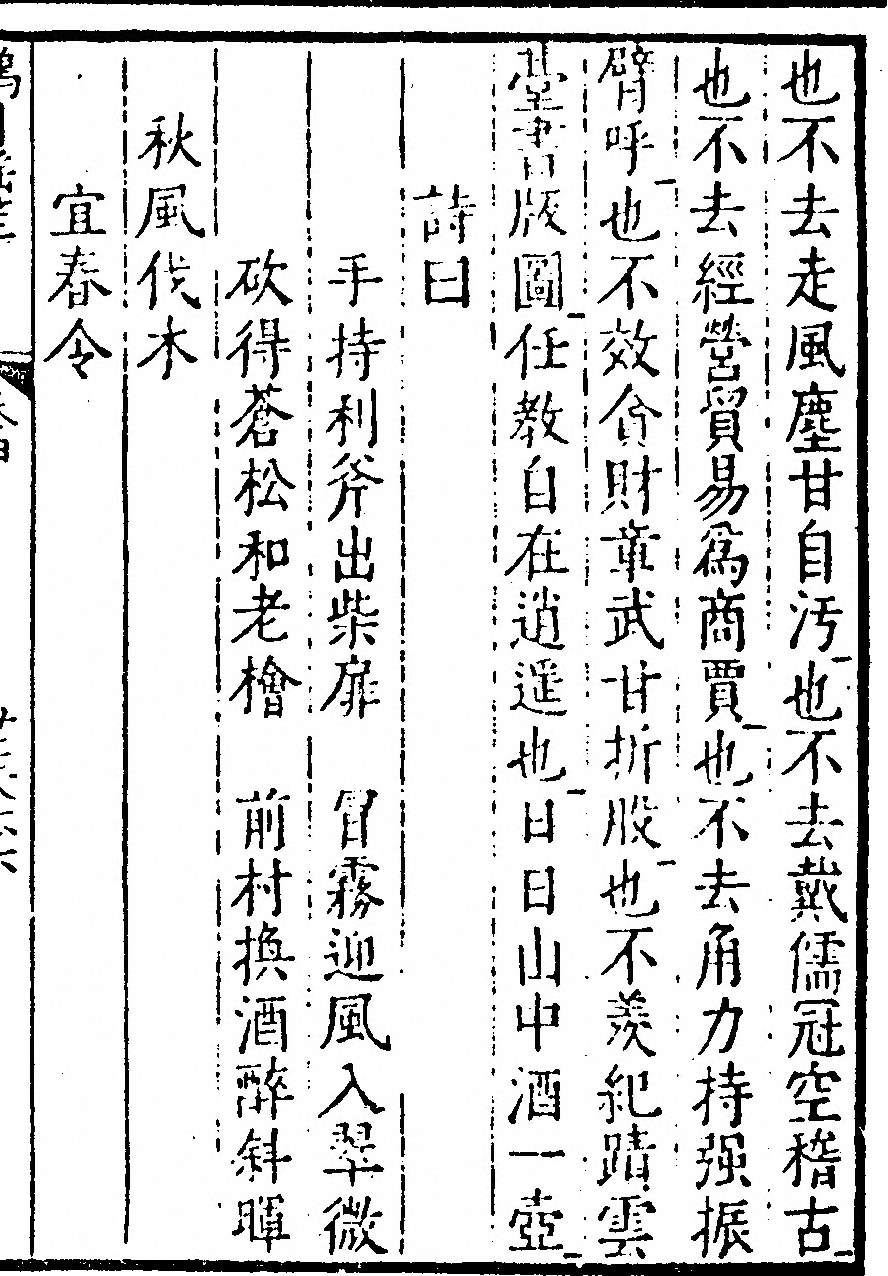 也不去走風塵甘自汚也不去戴儒冠空稽古
也不去經營貿易爲商賈也不去角力持强振
臂呼也不效貪財章武甘折股也不羡紀蹟雲
臺書版圖任教自在逍遥也日日山中酒一壺
詩曰
手持利斧出柴扉　冒霧迎風入翠微
砍得蒼松和老檜　前村換酒醉斜暉
秋風伐木
宜春令